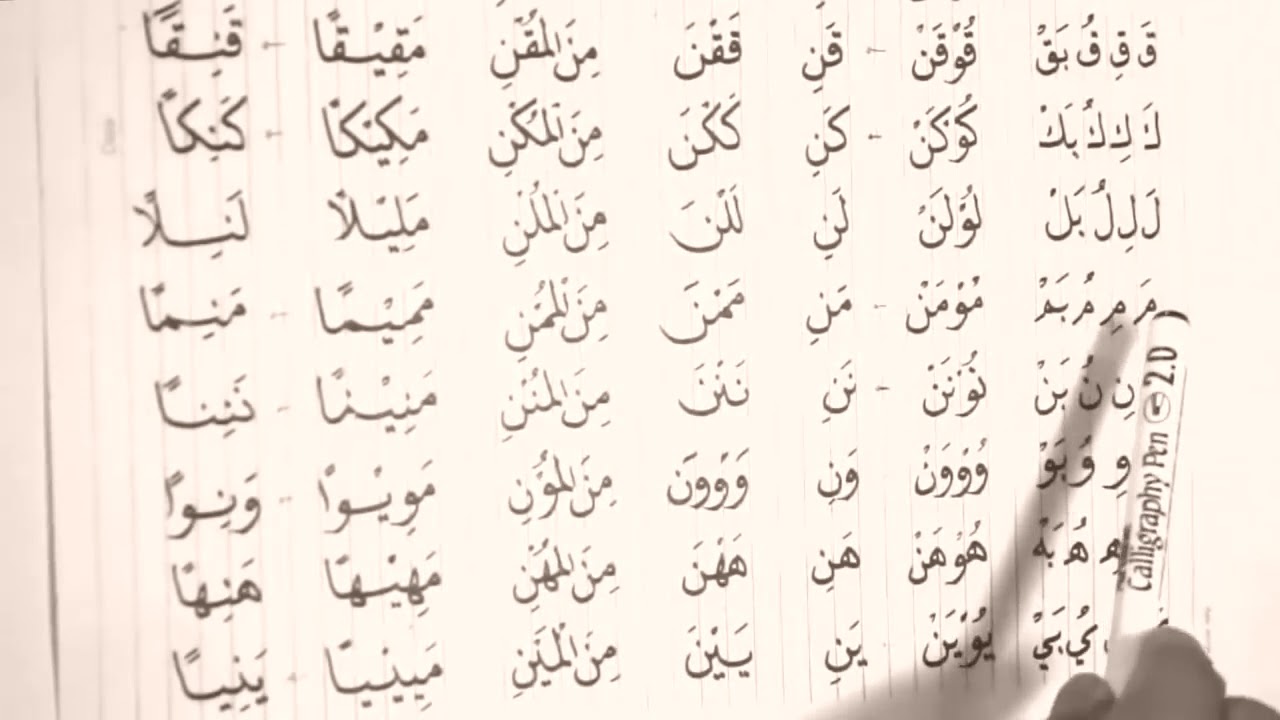 قَ قِ قُ بَقْ قُوْقَنْ - قَنِ قَقْنَ مِنَ الْمَقْنِ مَقِيْقًا - قَنِقًا
كَ كِ كُ بَكْ كُوْكَنْ - كَنِ كَكْنَ مِنَ الْمَكْنِ مَكِيْكًا - كَنِكًا
لَ لِ لُ بَلْ لُوْلَنْ لَنِ لَلْنَ مِنَ الْمَلْنِ مَلِيْلًا لَنِلًا
مَ مِ مُ بَمْ مُوْمَنْ - مَنِ مَمْنَ مِنَ الْمَمْنِ مَمِيْمًا - مَنِمًا
نِ نُ بَنْ نُوْنَنْ - نَنِ نَنْنَ مِنَ الْمَنْنِ مَنِيْنًا - نَنِنًا
وِ وُ بَوْ وُوْوَنْ وَنِ وَوْوَنَ مِنَ الْمَوْنِ مَوِيْوًا - وَنِوًا
هِ هُ بَهْ هُوْهَنْ هَنِ هَهْنَ مِنَ الْمَهْنِ مَهِيْهًا هَنِهًا
يُ بَيْ يُوْيَنْ يَنِ يَيْنَ مِنَ الْمَيْنِ مَيِيْيًا - يَنِيًا
Calligraphy Pen 2.0